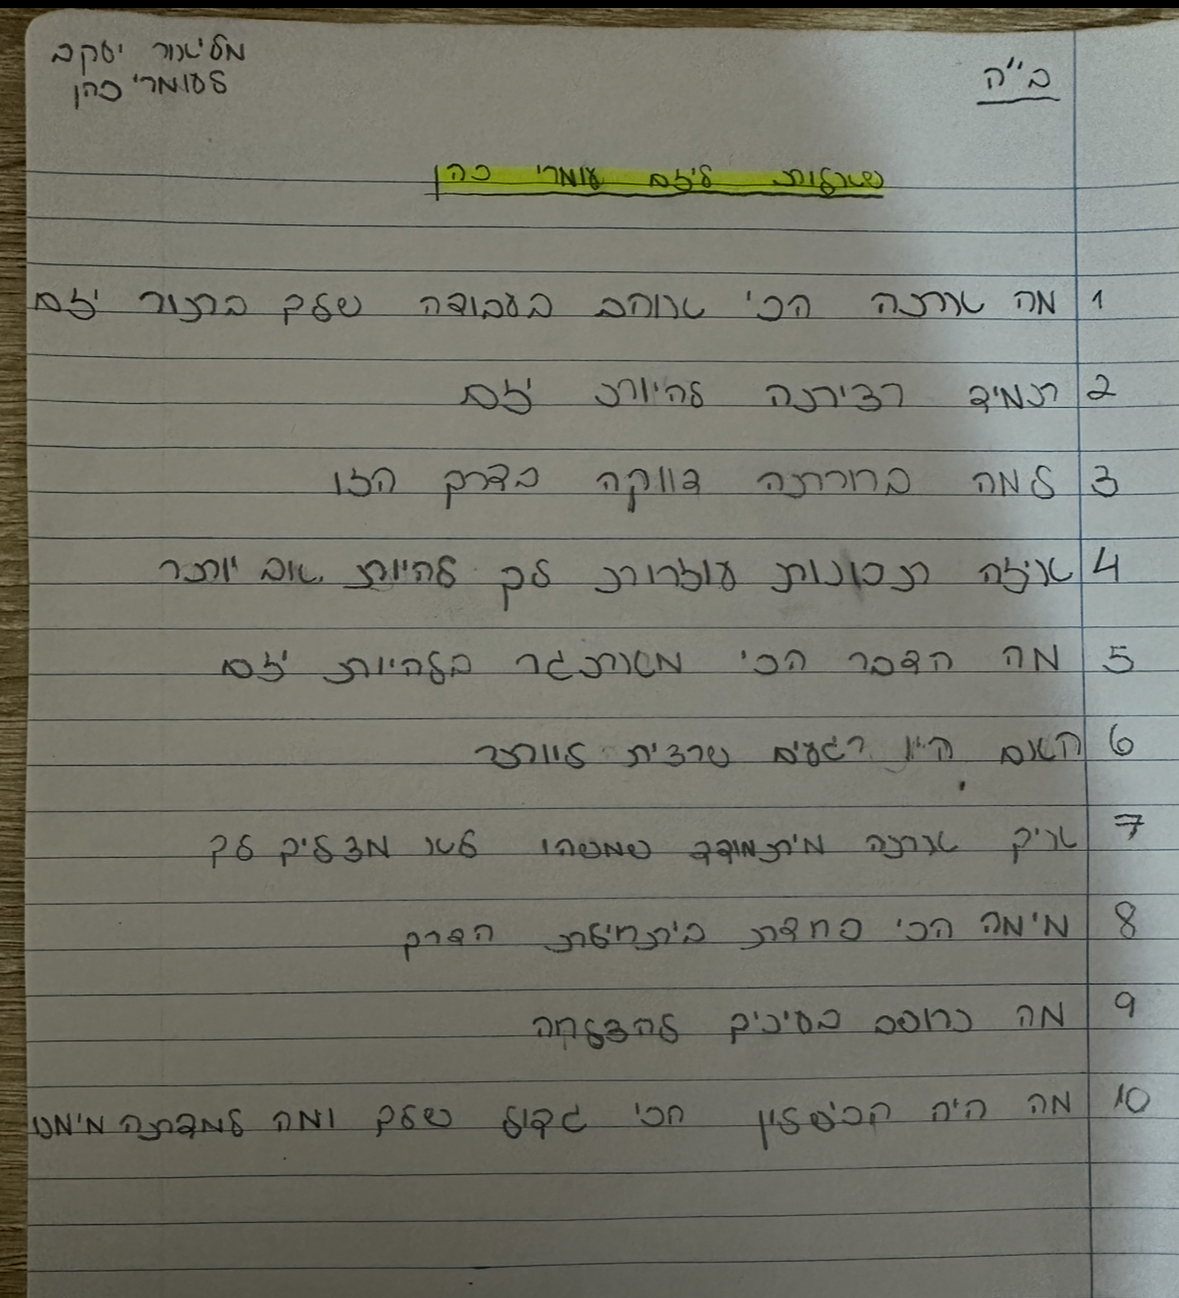 ב"ה
מליאור יעקב
לעומרי כהן
שאלות ליזם עומרי כהן
1 מה אתה הכי אוהב בעבודה שלך בתור יזם
2 תמיד רציתה להיות יזם
3 למה בחרתה דווקה בדרך הזו
4 איזה תכונות עוזרות לך להיות טוב יותר
5 מה הדבר הכי מאתגר בלהיות יזם
6 האם היו רגעים שרצית לוותר
7 איך אתה מיתמודד שמשהו לא מצליח לך
8 מימה הכי פחדת ביתחילת הדרך
9 מה גרוםם בעיניך להצלחה
10 מה היה הכישלון הכי גדול שלך ומה למדתה מימנו